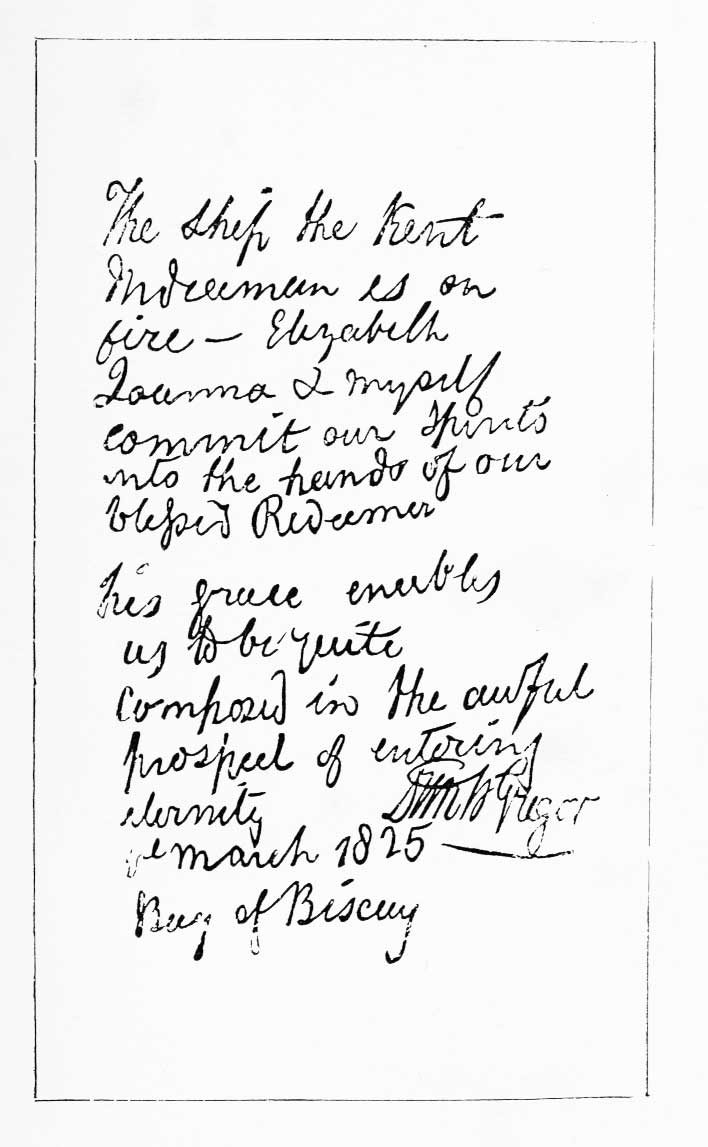 The ship the Kent
Indiaman is on
fire — Elizabeth
Joanna & myself
commit our spirits
into the hands of our
blessed Redeemer
his grace enables
us to be quite
composed in the awful
prospect of entering
eternity McGregor
March 1825
Bay of Biscay